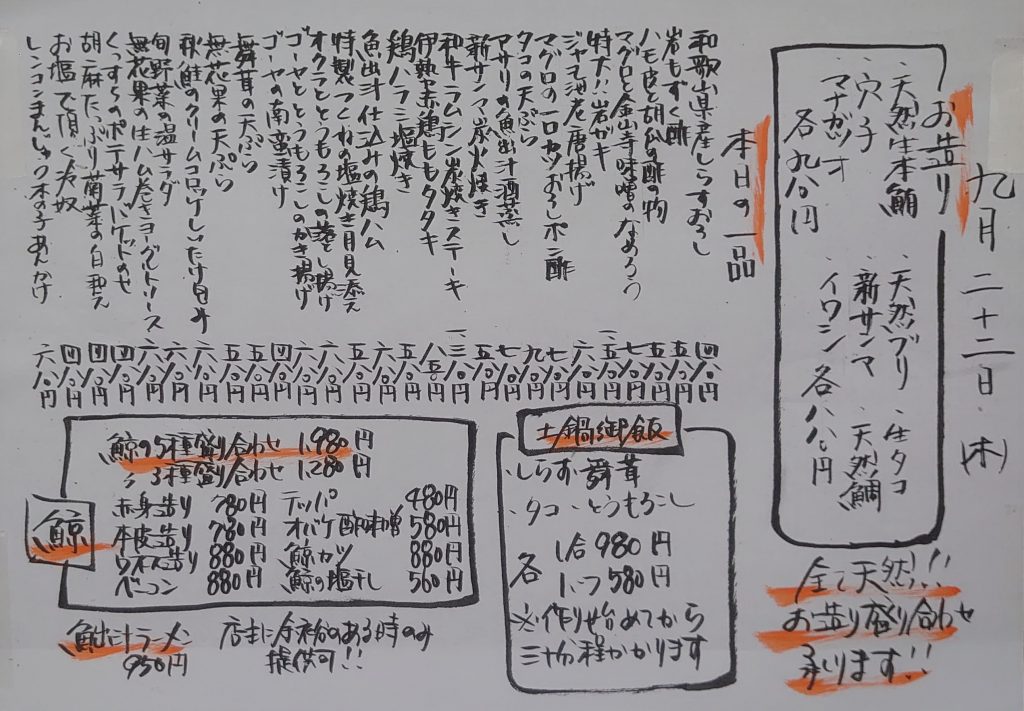 九月二十二日(木)
お造り
・天然生本鮪
・穴子
・マナガツオ
各九八〇円
・天然ブリ ・生タコ
・新サンマ ・天然鯛
・イワシ 各八八〇円
全て天然!!
お造り盛り合わせ
承ります!!
本日の一品
和歌山県産しらすおろし 四八〇円
岩もずく酢 五八〇円
ハモ皮と胡瓜の酢の物 五八〇円
マグロと金山寺味噌のなめろう 七八〇円
特大!!岩ガキ
ジャンボ海老唐揚げ 六八〇円
マグロの一口カツおろしポン酢 七八〇円
タコの天ぷら 九八〇円
アサリの魚出汁酒蒸し 七八〇円
新サンマ炭火焼き 五八〇円
和牛ラムシン炭焼きステーキ
伊勢赤鶏ももタタキ 八五〇円
鶏ハラミ塩焼き 五八〇円
魚出汁仕込みの鶏ハム 六八〇円
特製つくねの塩焼き月見添え 五八〇円
オクラととうもろこしの落とし揚げ 六八〇円
ゴーヤととうもろこしのかき揚げ 六八〇円
ゴーヤの南蛮漬け 四八〇円
舞茸の天ぷら 五八〇円
無花果の天ぷら 五八〇円
秋鮭のクリームコロッケ
旬野菜の温サラダ 六八〇円
無花果の生ハム巻きヨーグルトソース 六八〇円
のポテサラバケットのせ 四八〇円
胡麻たっぷり菊菜の白和え 四八〇円
お塩で頂く冷奴 四八〇円
レンコンまんじゅう木の子あんかけ 六八〇円
土鍋御飯
・しらす ・舞茸
・タコ ・とうもろこし
各 1合 980円
580円
※作り始めてから
三十分程かかります
鯨
鯨の5種盛り合わせ 1,980円
〃3種盛り合わせ 1,280円
赤身造り 780円 テッパ 480円
本皮造り 780円 オバケ酢味噌 580円
ウネス造り 880円 鯨カツ 880円
ベーコン 880円 鯨の塩干し 560円
鮪出汁ラーメン
950円
店主に余裕のある時のみ
提供可!!